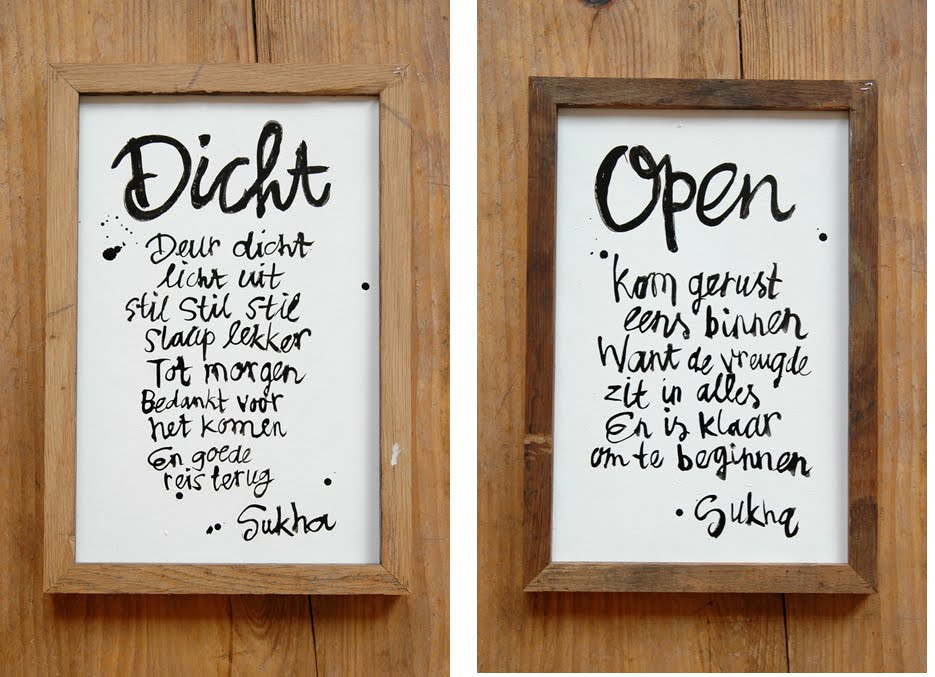 Dicht
Deur dicht
licht uit
stil stil stil
slaap lekker
Tot morgen
Bedankt voor
het komen
En goede
reis terug
Sukha
Open
kom gerust
eens binnen
Want de vreugde
zit in alles
En is klaar
om te beginnen
Sukha